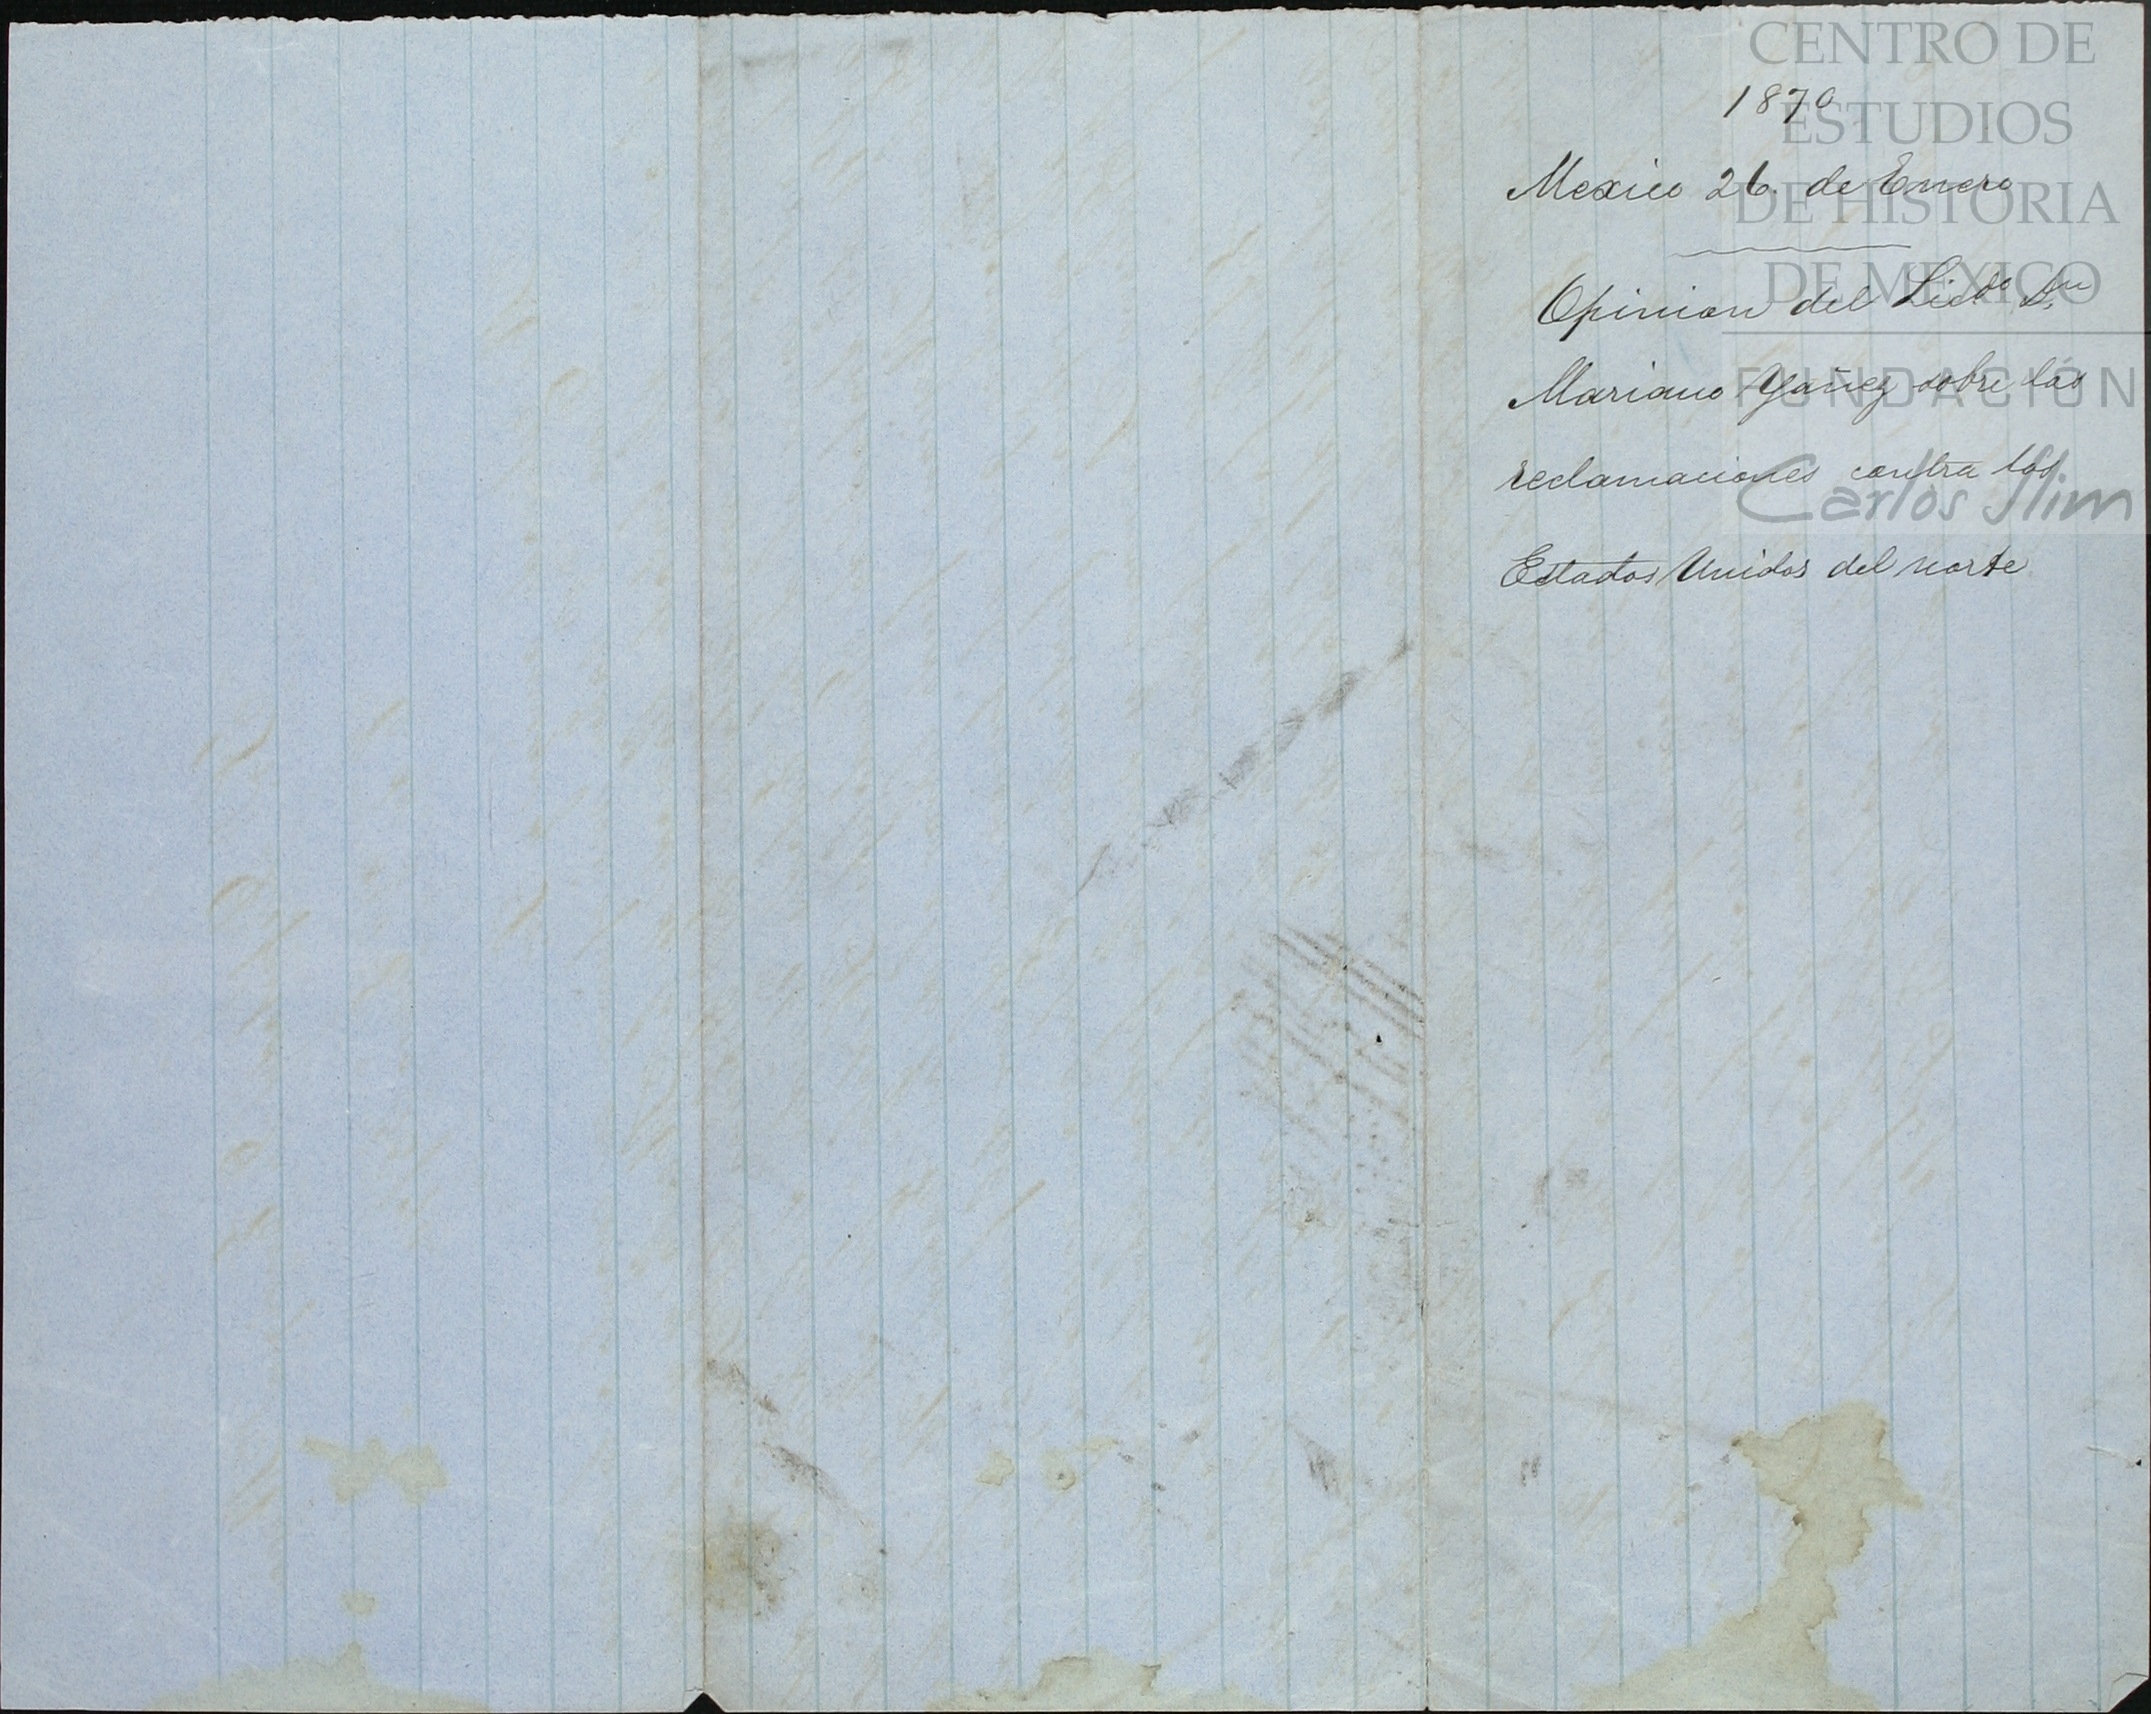 CENTRO DE
ESTUDIOS
DE HISTORIA
DE MÉXICO
FUNDACIÓN
Carlos Slim
1870
Mexico 26. de Enero
Opinion del Licdo Dn
Mariano Yañez sobre las
reclamaciones contra los
Estados Unidos del norte